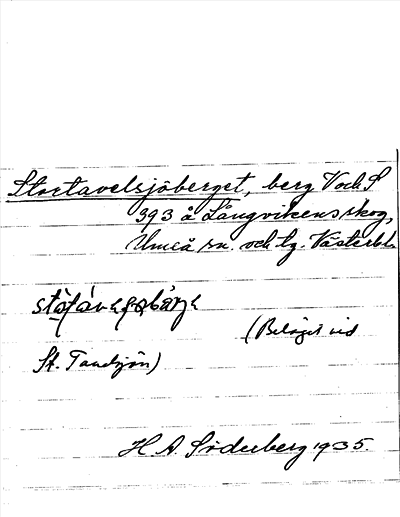 Stortavelsjöberget, berg V och S
393 å Långvikens skog,
Umeå sn. och tg. Västerbl.
(Beläget vid
St. Tavelsjön)
H. A. Söderberg 1935.